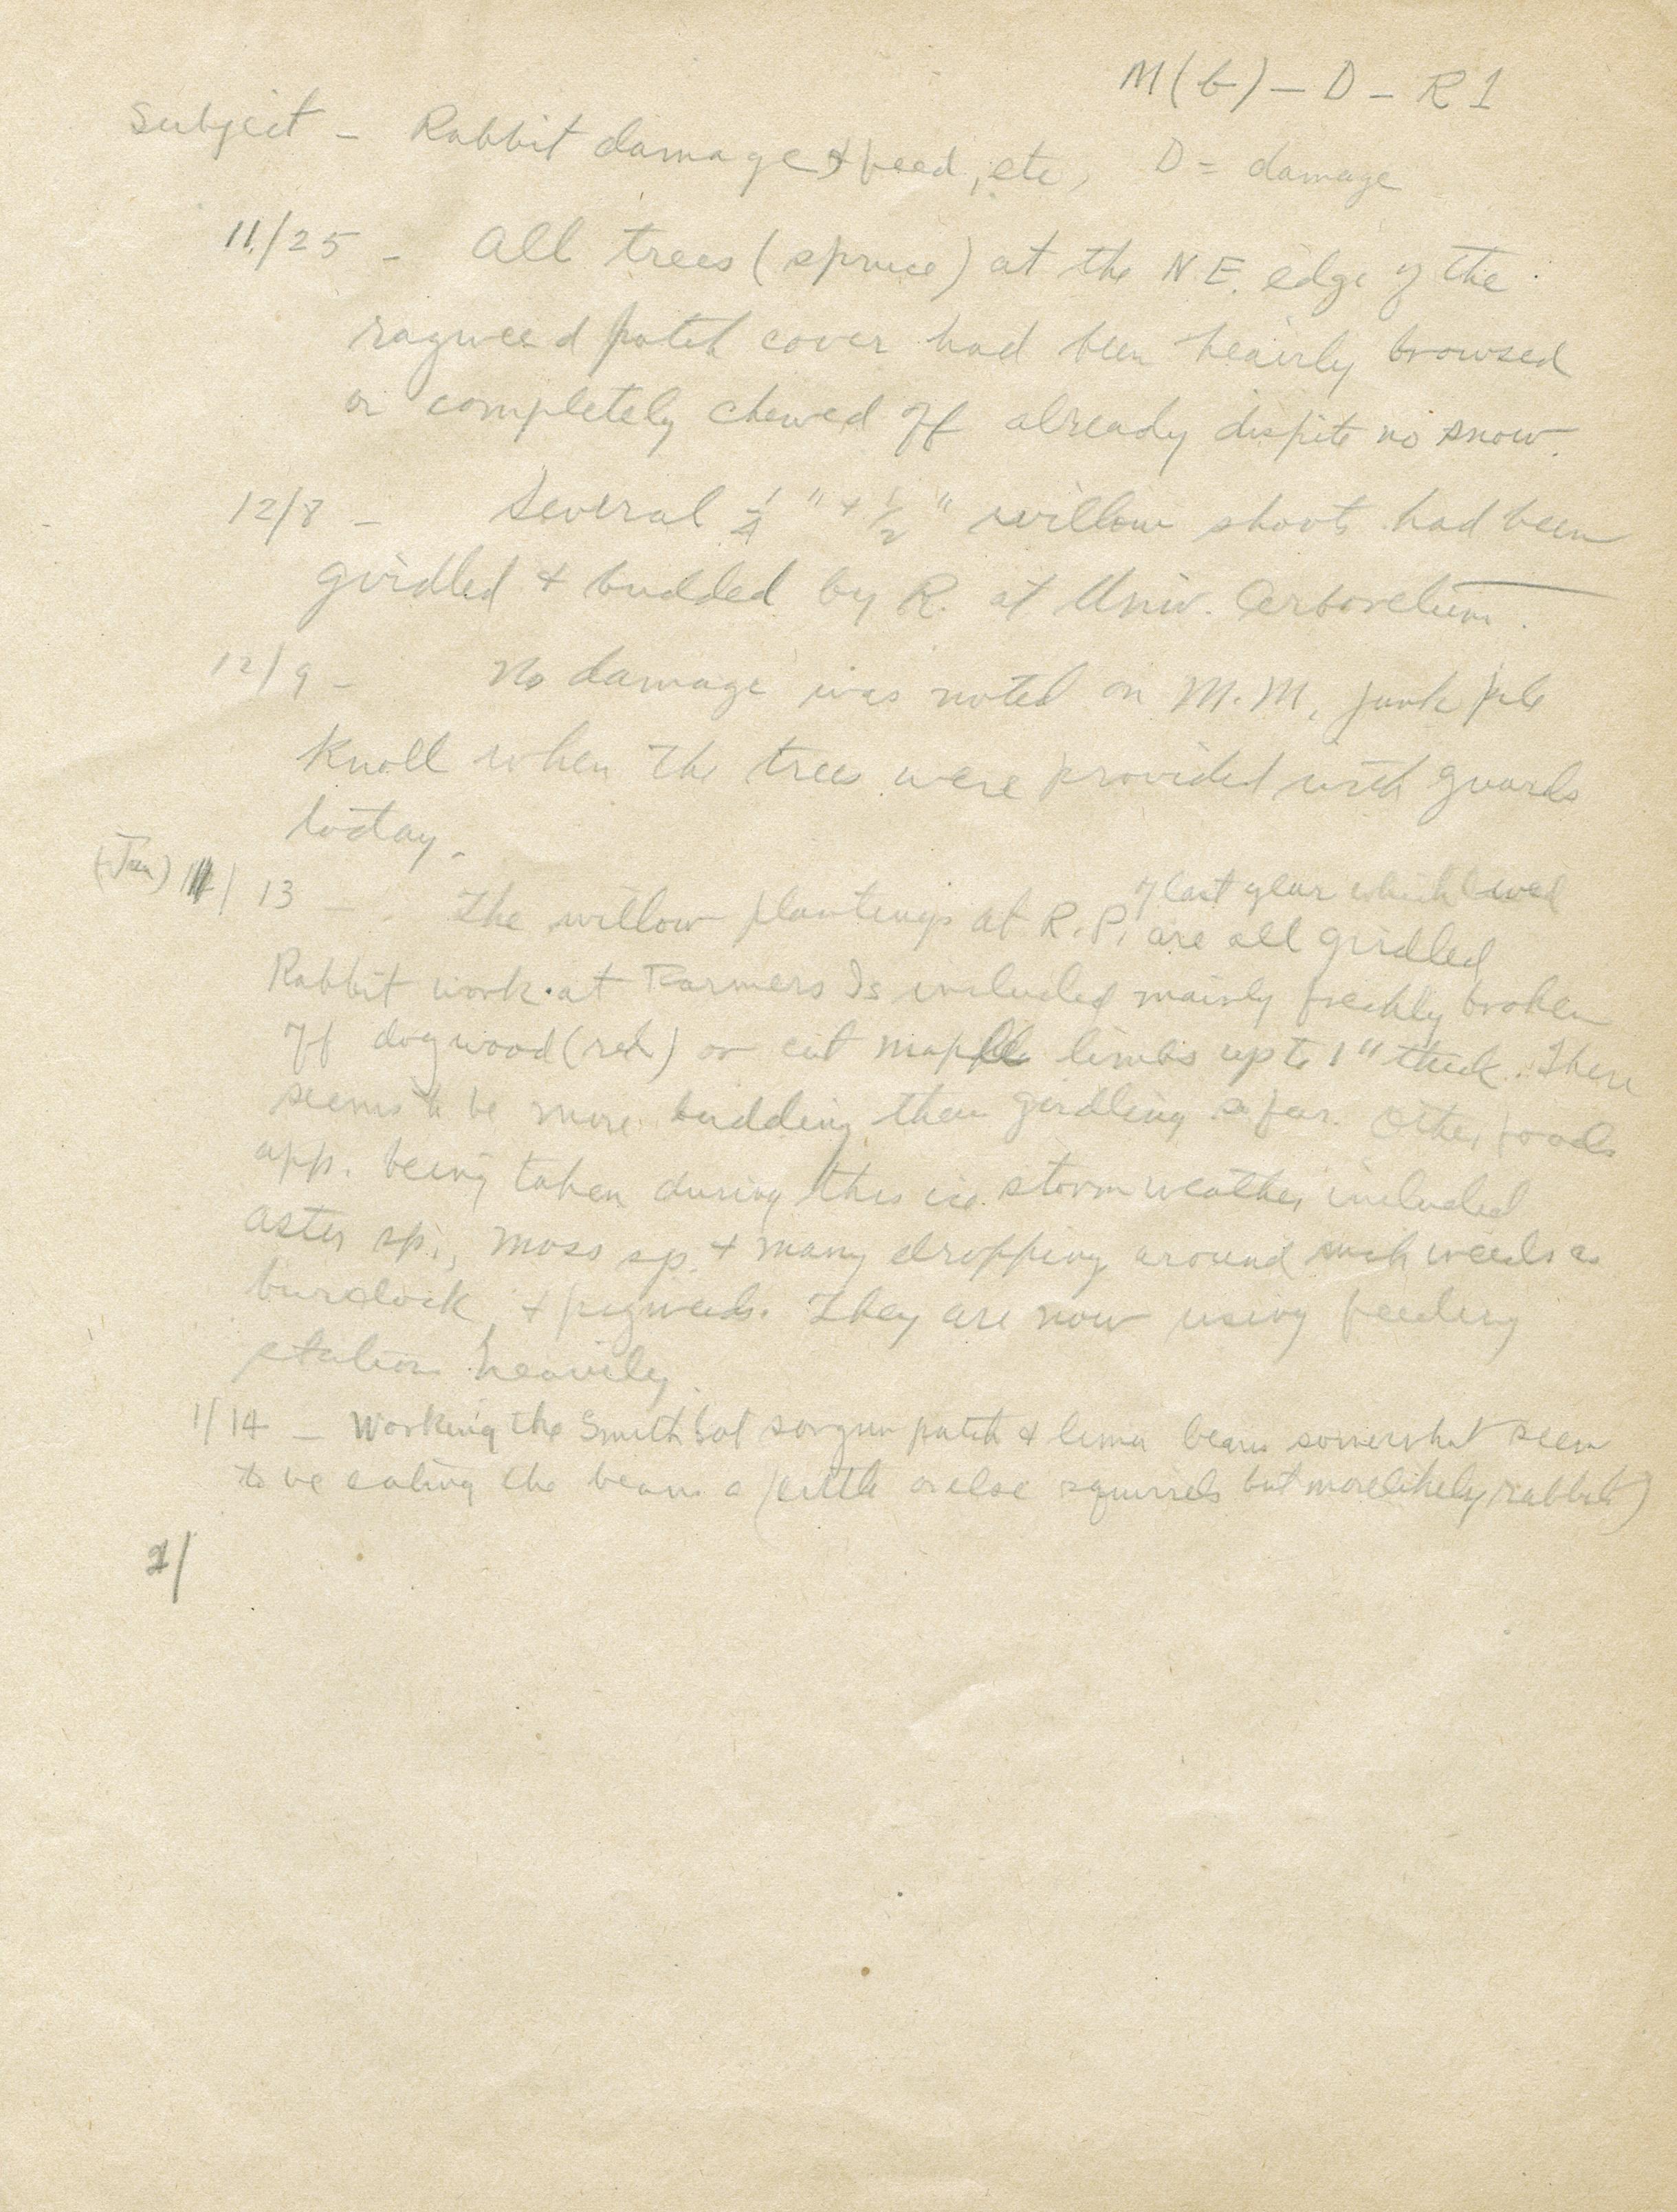 M(b) - D - R 1
Subject - Rabbit damage & feed, etc, D = damage
11/25 - All trees (spruce) at the N.E. edge of the
ragweed patch cover had been heavily browsed
or completely chewed off already dispite no snow.
12/8 - Several 1/4" + 1/2" willow shoots had been
girdled + budded by R. at Univ. Arboretum.
12/9 - No damage was noted on M.M. junk pile
Knoll when the trees were provided with guards
today.
(Jan) 1/13 - The willow plantings at R.P. of last year which lived are all girdled
Rabbit work at Farmers Is included mainly freshly broken
off dogwood (red) or cut maple limbs up to 1" thick. There
seems to be more budding than girdling so far. Other foods
app. being taken during this ice storm weather included
aster sp., moss sp. + many dropping around such weeds as
burdock + pigweeds. They are now using feeding
stations heavily.
1/14 - Working the Smith lot sorgum patch & lima beans somewhat seem
to be eating the beans a little (or else squirrels but more likely rabbits)
1/